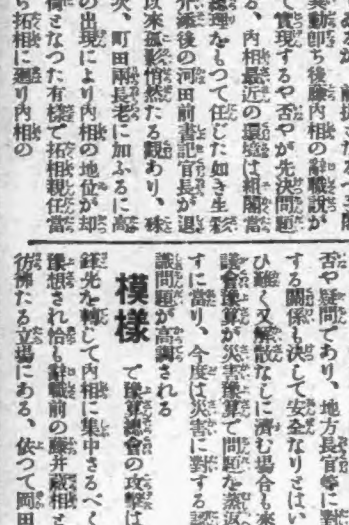 あるが、前提
異動即ち後藤内相の辭職說が
て實現するや否やが先決問題
る、内相最近の環境は組閣當
總理をもつて任じた如き生彩
介添後の河田前書記官長が退
以來孤影悄然たる觀あり、殊
次、町田兩長老に加ふるに高
の出現により内相の地位が却
衝となつた有樣で拓相親任當
ら拓相に廻り内相の
否や疑問であり、地方長官等に對
する關係も決して安全なりとはい
ひ難く又解散なしに濟む場合も
議會豫算が災害豫算で問題を蒸返
すに當り、今度は災害に對する認
識問題が高調される
模樣
で豫算總會の攻擊は
鋒先を轉じて内相に集中さるべく
豫想され恰も辭職前の藤井藏相と
彷彿たる立場にある、依つて岡田